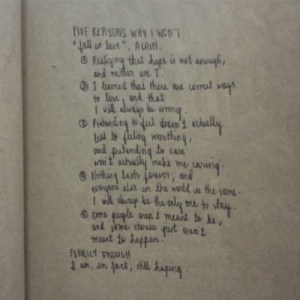 FIVE REASONS WHY I WON'T
"fall in love". AGAIN.
① Realizing that hope is not enough,
and neither am I.
② I learned that there are correct ways
to love, and that
I will always be wrong.
③ Pretending to feel doesn't actually
lead to feeling something,
and pretending to care
won't actually make me caring.
④ Nothing lasts forever, and
everyone else in the world is the same.
I will always be the only one to stay.
⑤ Some people aren't meant to be,
and some stories just aren't
meant to happen.
FUNNILY ENOUGH
I am, in fact, still hoping